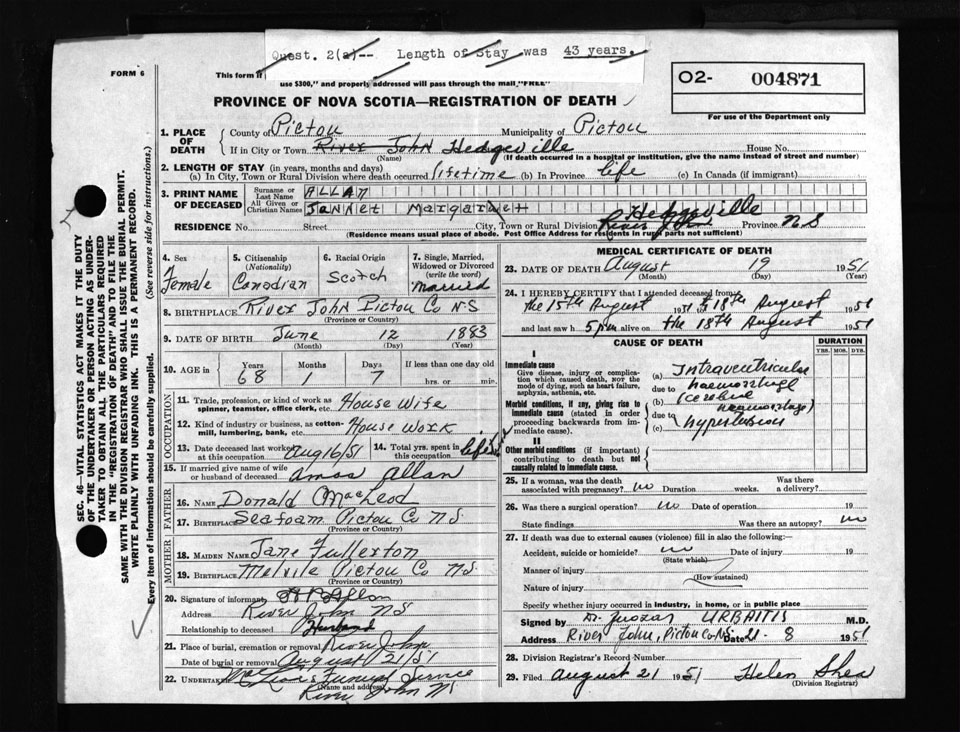 Quest. 2(a)-- Length of Stay was 43 years.
FORM 6
This form if
use $300," and properly addressed will pass through the mail "FREE"
O2- 004871
For use of the Department only
PROVINCE OF NOVA SCOTIA—REGISTRATION OF DEATH
SEC. 46—VITAL STATISTICS ACT MAKES IT THE DUTY
OF THE UNDERTAKER OR PERSON ACTING AS UNDER-
TAKER TO OBTAIN ALL THE PARTICULARS REQUIRED
IN THE "REGISTRATION OF DEATH" AND TO FILE THE
SAME WITH THE DIVISION REGISTRAR WHO SHALL ISSUE THE BURIAL PERMIT.
WRITE PLAINLY WITH UNFADING INK. THIS IS A PERMANENT RECORD.
Every item of information should be carefully supplied. (See reverse side for instructions.)
1. PLACE OF DEATH
County of Pictou Municipality of Pictou
If in City or Town River John Hedgeville House No.
(Name) (If death occurred in a hospital or institution, give the name instead of street and number)
2. LENGTH OF STAY (in years, months and days)
(a) In City, Town or Rural Division where death occurred lifetime (b) In Province life (c) In Canada (if immigrant)
3. PRINT NAME OF DECEASED
Surname or Last Name ALLAN
All Given or Christian Names Jannet Margaret
Hedgeville
RESIDENCE No. Street City, Town or Rural Division River John Province NS
(Residence means usual place of abode. Post Office Address for residents in rural parts not sufficient)
4. Sex
Female
5. Citizenship
(Nationality)
Canadian
6. Racial Origin
Scotch
7. Single, Married,
Widowed or Divorced
(write the word)
Married
8. BIRTHPLACE River John Pictou Co NS
(Province or Country)
9. DATE OF BIRTH June 12 1883
(Month) (Day) (Year)
10. AGE in Years Months Days If less than one day old
68 1 7 hrs. or min.
OCCUPATION
11. Trade, profession, or kind of work as
spinner, teamster, office clerk, etc. House Wife
12. Kind of industry or business, as cotton-
mill, lumbering, bank, etc. House Work
13. Date deceased last worked at this occupation Aug 16/51
14. Total yrs. spent in this occupation life
15. If married give name of wife
or husband of deceased Amos Allan
FATHER
16. Name Donald MacLeod
17. Birthplace Seafoam Pictou Co NS.
(Province or Country)
MOTHER
18. Maiden Name Jane Fullerton
19. Birthplace Melvile Pictou Co NS.
(Province or Country)
20. Signature of informant Allan
Address River John NS
Relationship to deceased Husband
21. Place of burial, cremation or removal River John
Date of burial or removal August 21/51
22. Undertaker Funeral Service
(Name and address)
River John NS
MEDICAL CERTIFICATE OF DEATH
23. DATE OF DEATH August 19 1951
(Month) (Day)
24. I HEREBY CERTIFY that I attended deceased from
the 15th August 1951 to 18th August 1951
and last saw h 5 pm alive on the 18th August 1951
CAUSE OF DEATH
DURATION
YRS. MOS. DYS.
I
Immediate cause
Give disease, injury or compli-
cation which caused death, NOT the
mode of dying, such as heart failure,
asphyxia, asthenia, etc.
(a) Intraventricular
haemorrhage
due to
Morbid conditions, if any, giving rise to
immediate cause (stated in order
proceeding backwards from im-
mediate cause).
(b) (cerebral
haemorrhage)
due to
(c) hypertension
II
Other morbid conditions (if important)
contributing to death but not
causally related to immediate cause.
25. If a woman, was the death Was there
associated with pregnancy? no Duration weeks. a delivery?
26. Was there a surgical operation? no Date of operation 19
State findings Was there an autopsy? no
27. If death was due to external causes (violence) fill in also the following:—
Accident, suicide or homicide? no Date of injury 19
(State which)
Manner of injury
(How sustained)
Nature of injury
Specify whether injury occurred in industry, in home, or in public place
Signed by Dr. Juozas URBAITIS M.D.
Address River John, Pictou Co NS. Date 21. 8 1951
28. Division Registrar's Record Number
29. Filed August 21 1951 Helen Shea
(Division Registrar)